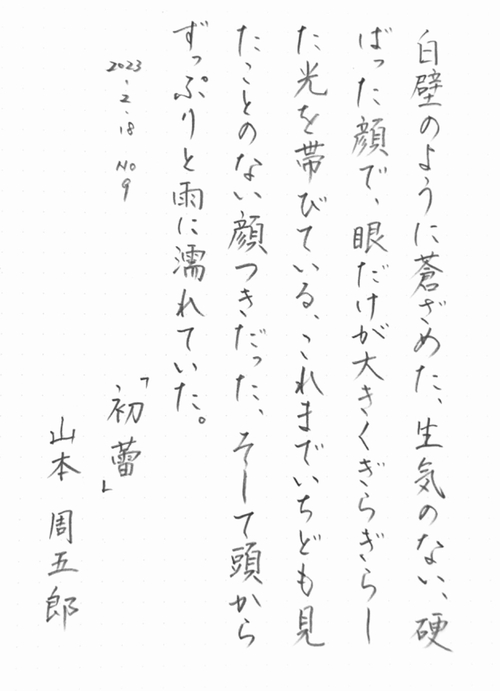 白壁のように蒼ざめた、生気のない、硬
ばった顔で、眼だけが大きくぎらぎらし
た光を帯びている、これまでいちども見
たことのない顔つきだった、そして頭から
ずっぷりと雨に濡れていた。
2023.2.18 No9
「初蕾」
山本周五郎